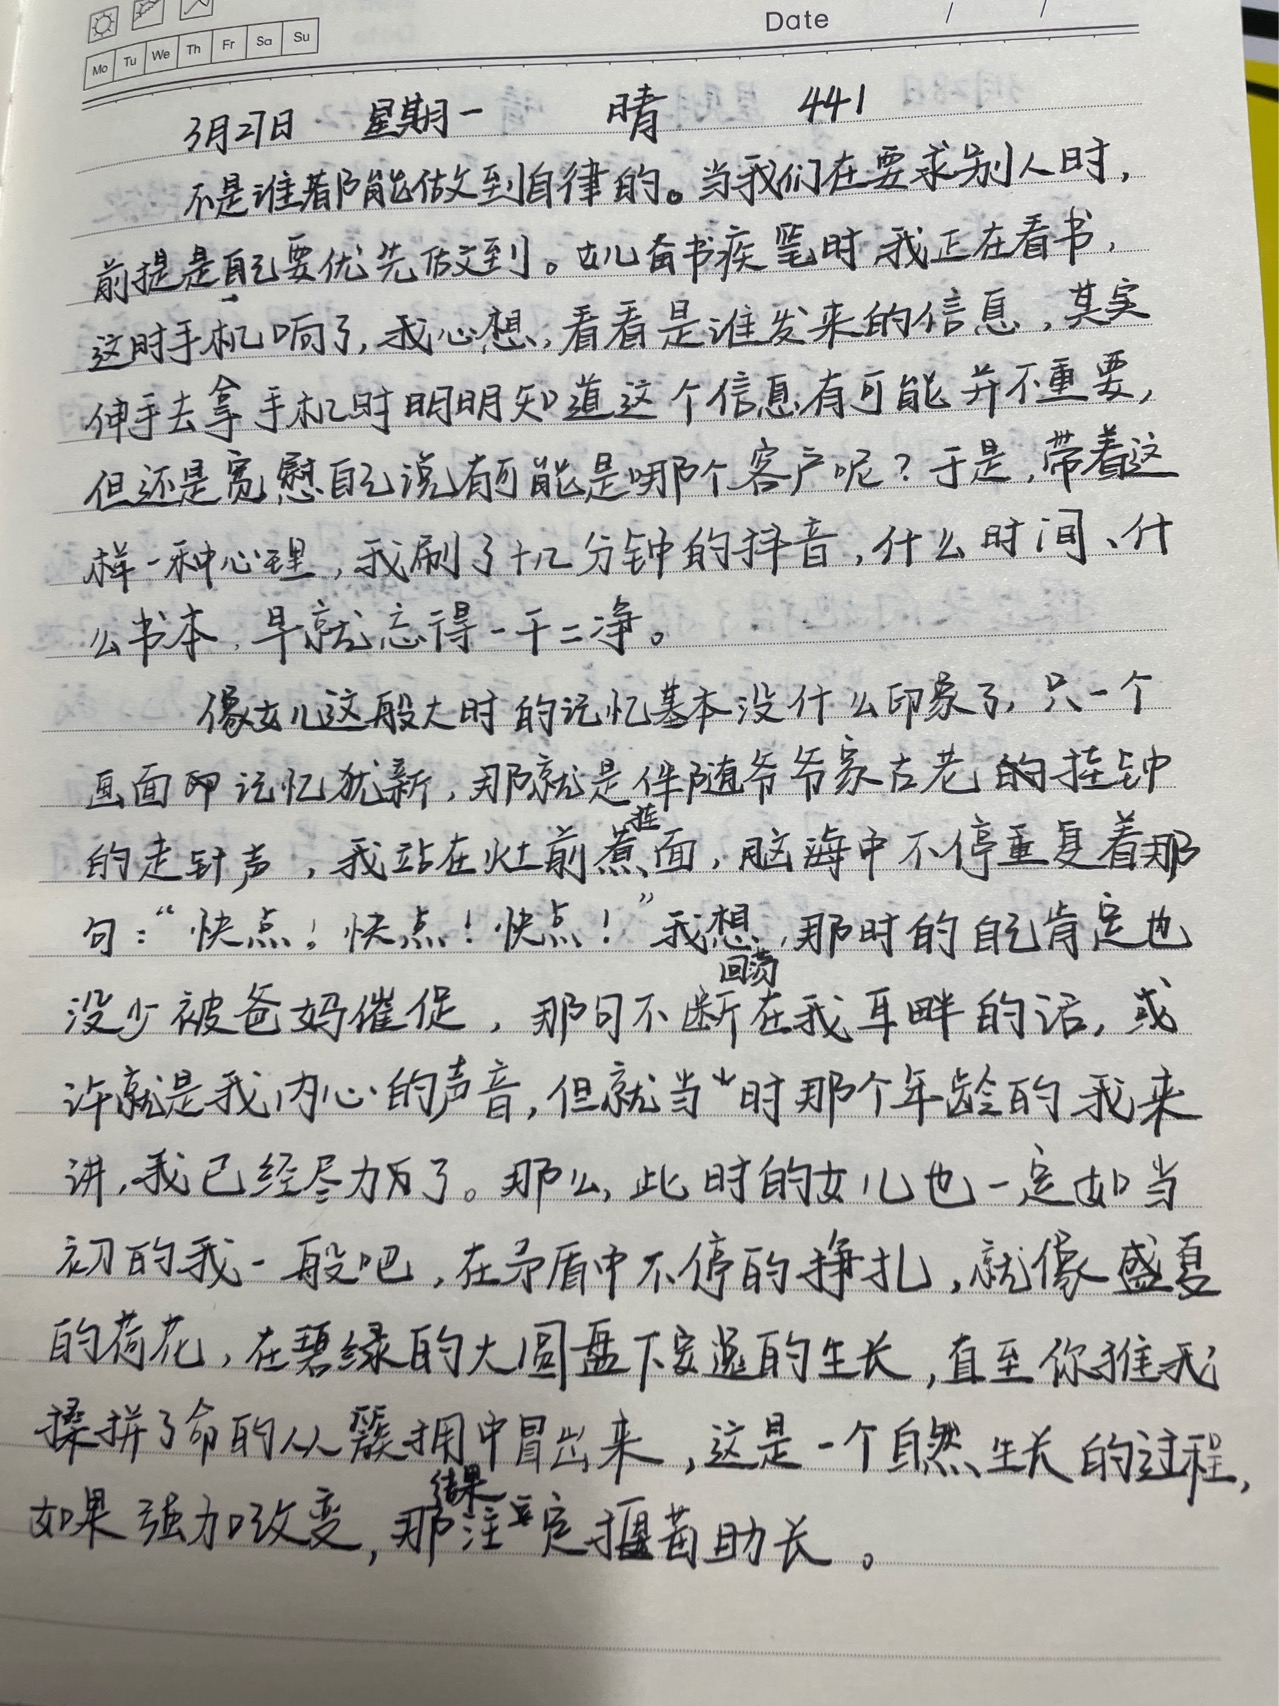 Date / /
Mo Tu We Th Fr Sa Su
3月27日 星期一 晴 441
不是谁都能做到自律的。当我们在要求别人时，
前提是自己要优先做到。女儿奋书疾笔时我正在看书，
这时手机响了，我心想，看看是谁发来的信息，其实
伸手去拿手机时明明知道这个信息有可能并不重要，
但还是宽慰自己说有可能是哪个客户呢？于是，带着这
样一种心理，我刷了十几分钟的抖音，什么时间、什
么书本，早就忘得一干二净。
像女儿这般大时的记忆基本没什么印象了，只一个
画面却记忆犹新，那就是伴随爷爷家古老的挂钟
的走针声，我站在灶前煮挂面，脑海中不停重复着那
句：“快点！快点！快点！”我想，那时的自己肯定也
没少被爸妈催促，那句不断回荡在我耳畔的话，或
许就是我内心的声音，但就当时那个年龄的我来
讲，我已经尽力了。那么，此时的女儿也一定如当
初的我一般吧，在矛盾中不停的挣扎，就像盛夏
的荷花，在碧绿的大圆盘下安逸的生长，直至你推我
搡拼了命的从簇拥中冒出来，这是一个自然生长的过程，
如果强加改变，那结果注定揠苗助长。